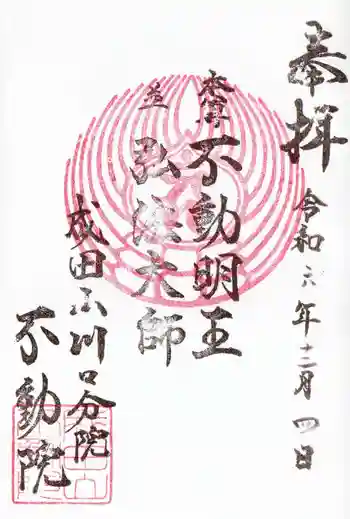 奉拝
令和六年十二月四日
本尊
不動明王
弘法大師
成田山川口分院
不動院